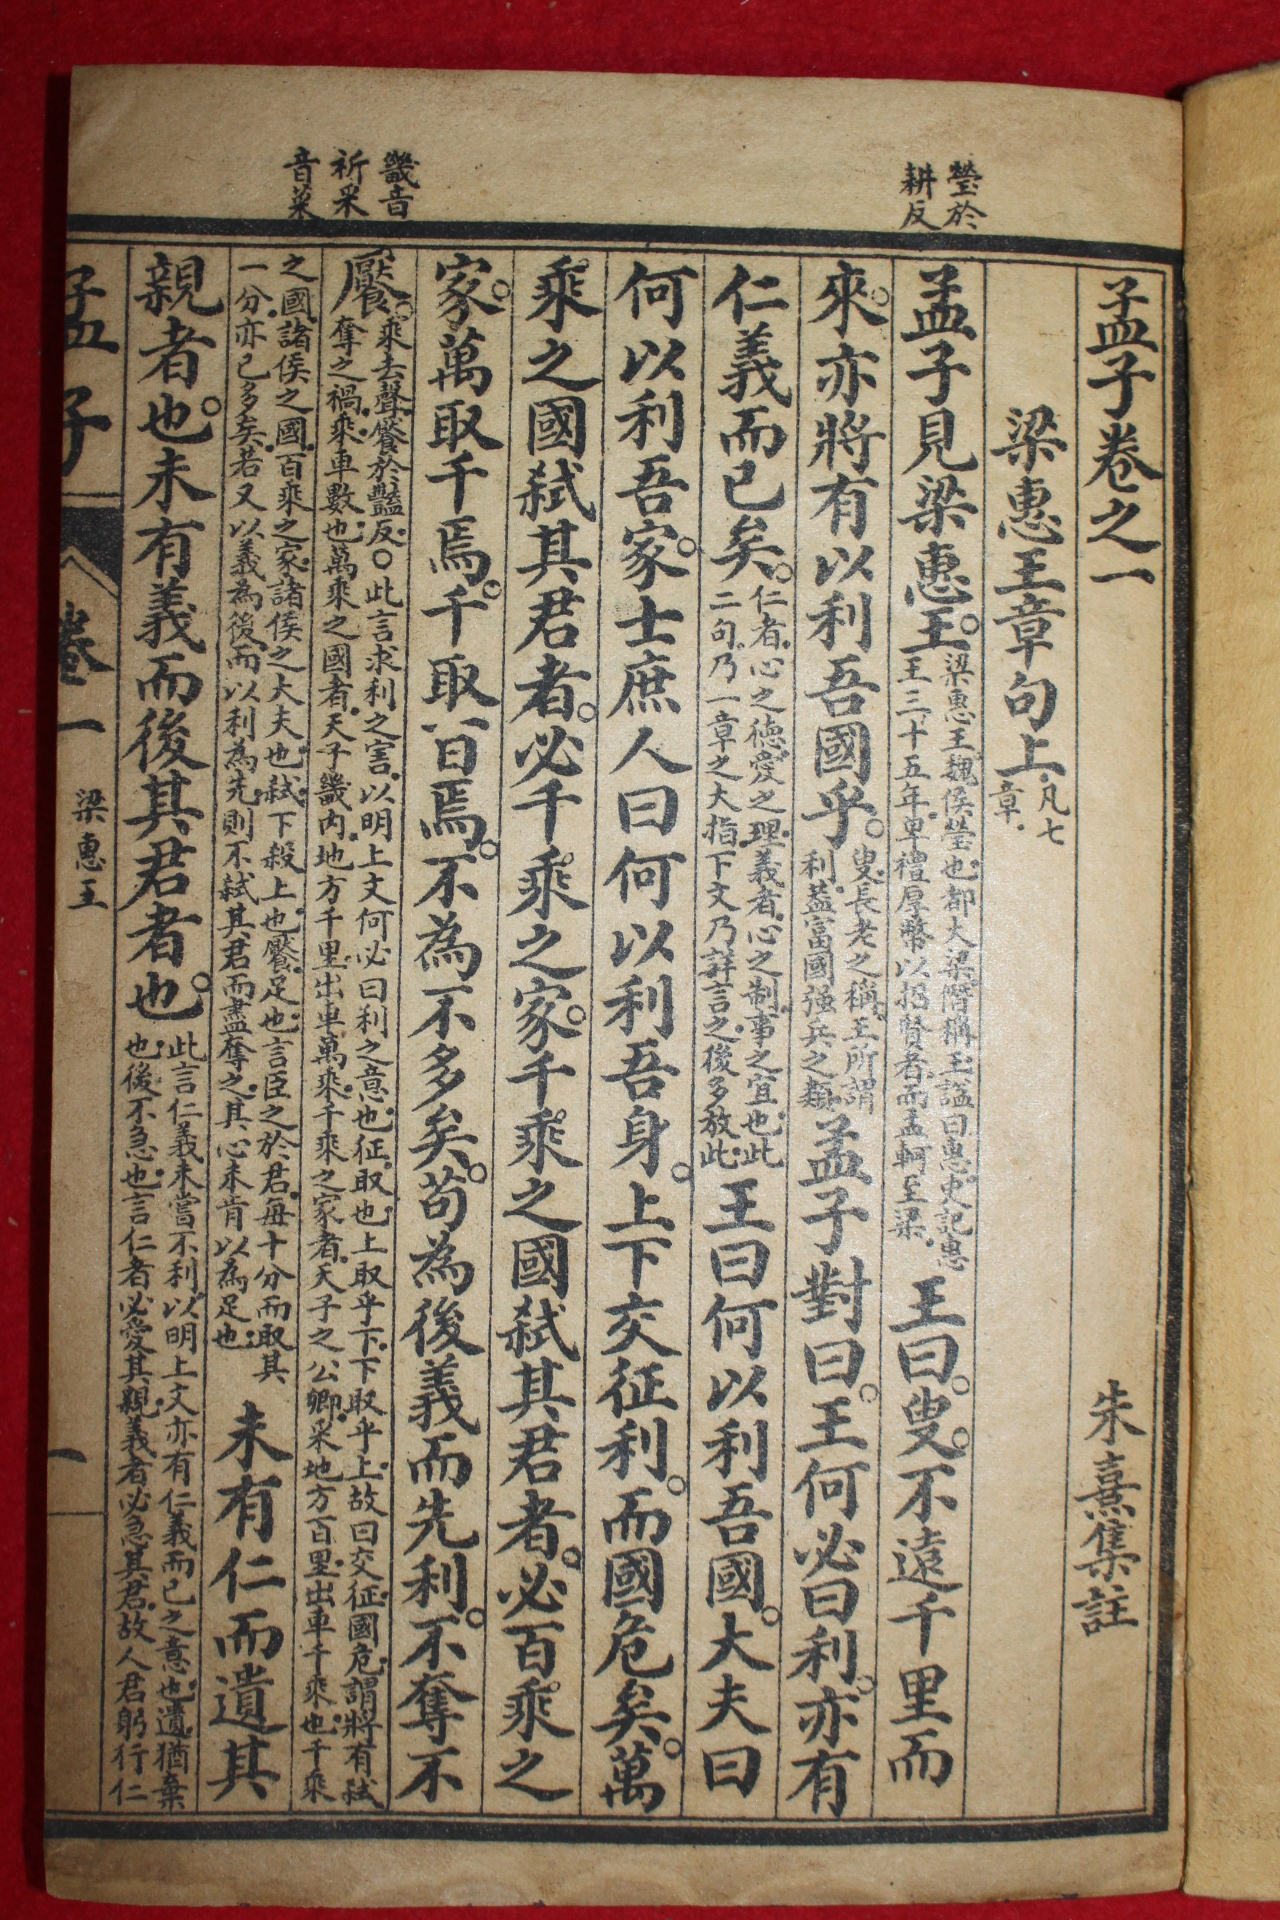 瑩於
耕反
畿音
祈采
音菜
孟子卷之一
朱熹集註
梁惠王章句上
凡七
章
孟子見梁惠王
梁惠王魏侯瑩也都大梁僭稱王諡曰惠史記惠
王三十五年卑禮厚幣以招賢者而孟軻至梁
王曰叟不遠千里而
來亦將有以利吾國乎
叟長老之稱王所謂
利蓋富國强兵之類
孟子對曰王何必曰利亦有
仁義而已矣
仁者心之德愛之理義者心之制事之宜也此
二句乃一章之大指下文乃詳言之後多放此
王曰何以利吾國大夫曰
何以利吾家士庶人曰何以利吾身上下交征利而國危矣萬
乘之國弑其君者必千乘之家千乘之國弑其君者必百乘之
家萬取千焉千取百焉不為不多矣苟為後義而先利不奪不
饜
乘去聲饜於豔反○此言求利之害以明上文何必曰利之意也征取也上取乎下下取乎上故曰交征國危謂將有弑
奪之禍乘車數也萬乘之國者天子畿內地方千里出車萬乘千乘之家者天子之公卿采地方百里出車千乘也千乘
之國諸侯之國百乘之家諸侯之大夫也弑下殺上也饜足也言臣之於君每十分而取其
一分亦已多矣若又以義為後而以利為先則不弑其君而盡奪之其心未肯以為足也
未有仁而遺其
親者也未有義而後其君者也
此言仁義未嘗不利以明上文亦有仁義而已之意也遺猶棄
也後不急也言仁者必愛其親義者必急其君故人君躬行仁
孟子
卷一
梁惠王
一